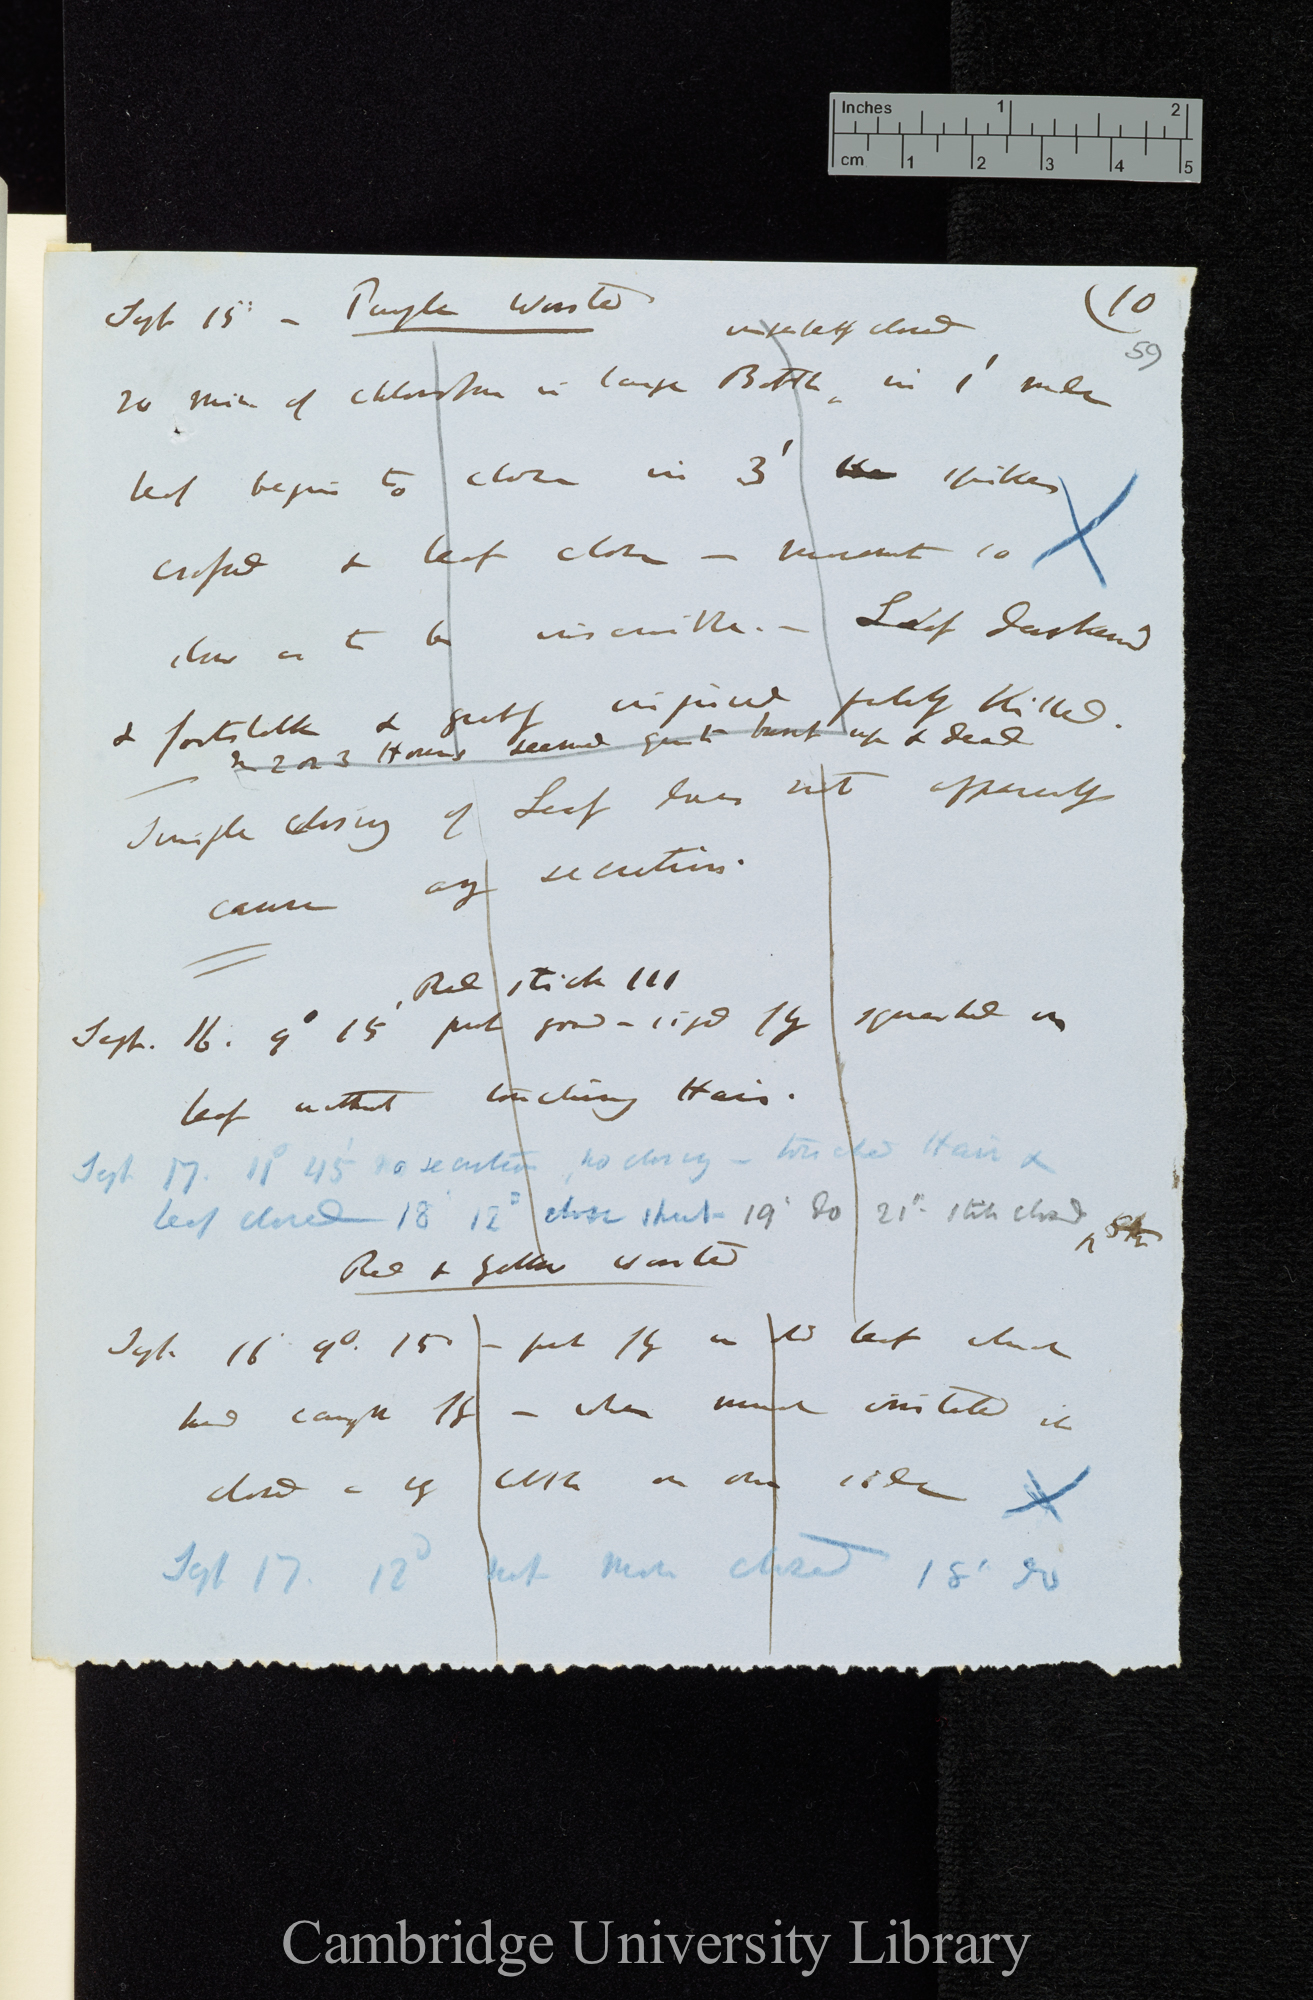 Inches 1 2
cm 1 2 3 4 5
(10
59
Sept 15' — Purple Worsted
immediately closed
20 min of chloroform in large Bottle, in 1' under
leaf begin to close in 3' the spikes
crossed & leaf close — movement so
slow as to be insensible. — Leaf darkened
& footstalk & greatly injured probably killed.
In 2 or 3 Hours seemed quite burnt up & dead
Simple closing of Leaf does not apparently
cause any secretion.
Red stick III
Sept. 16. 9° 15' put good-sized fly squashed on
leaf without touching Hair.
Sept 17. 11° 45' no secretion, no closing — touched Hair &
leaf closed 18' 12° close shut 19' do 21st still closed
Red & Yellow worsted
Sept 16 9°. 15' — put fly on old leaf which
had caught fly — when much irritated it
closed a very little on one side
Sept 17. 12° not more closed 18' do
Cambridge University Library